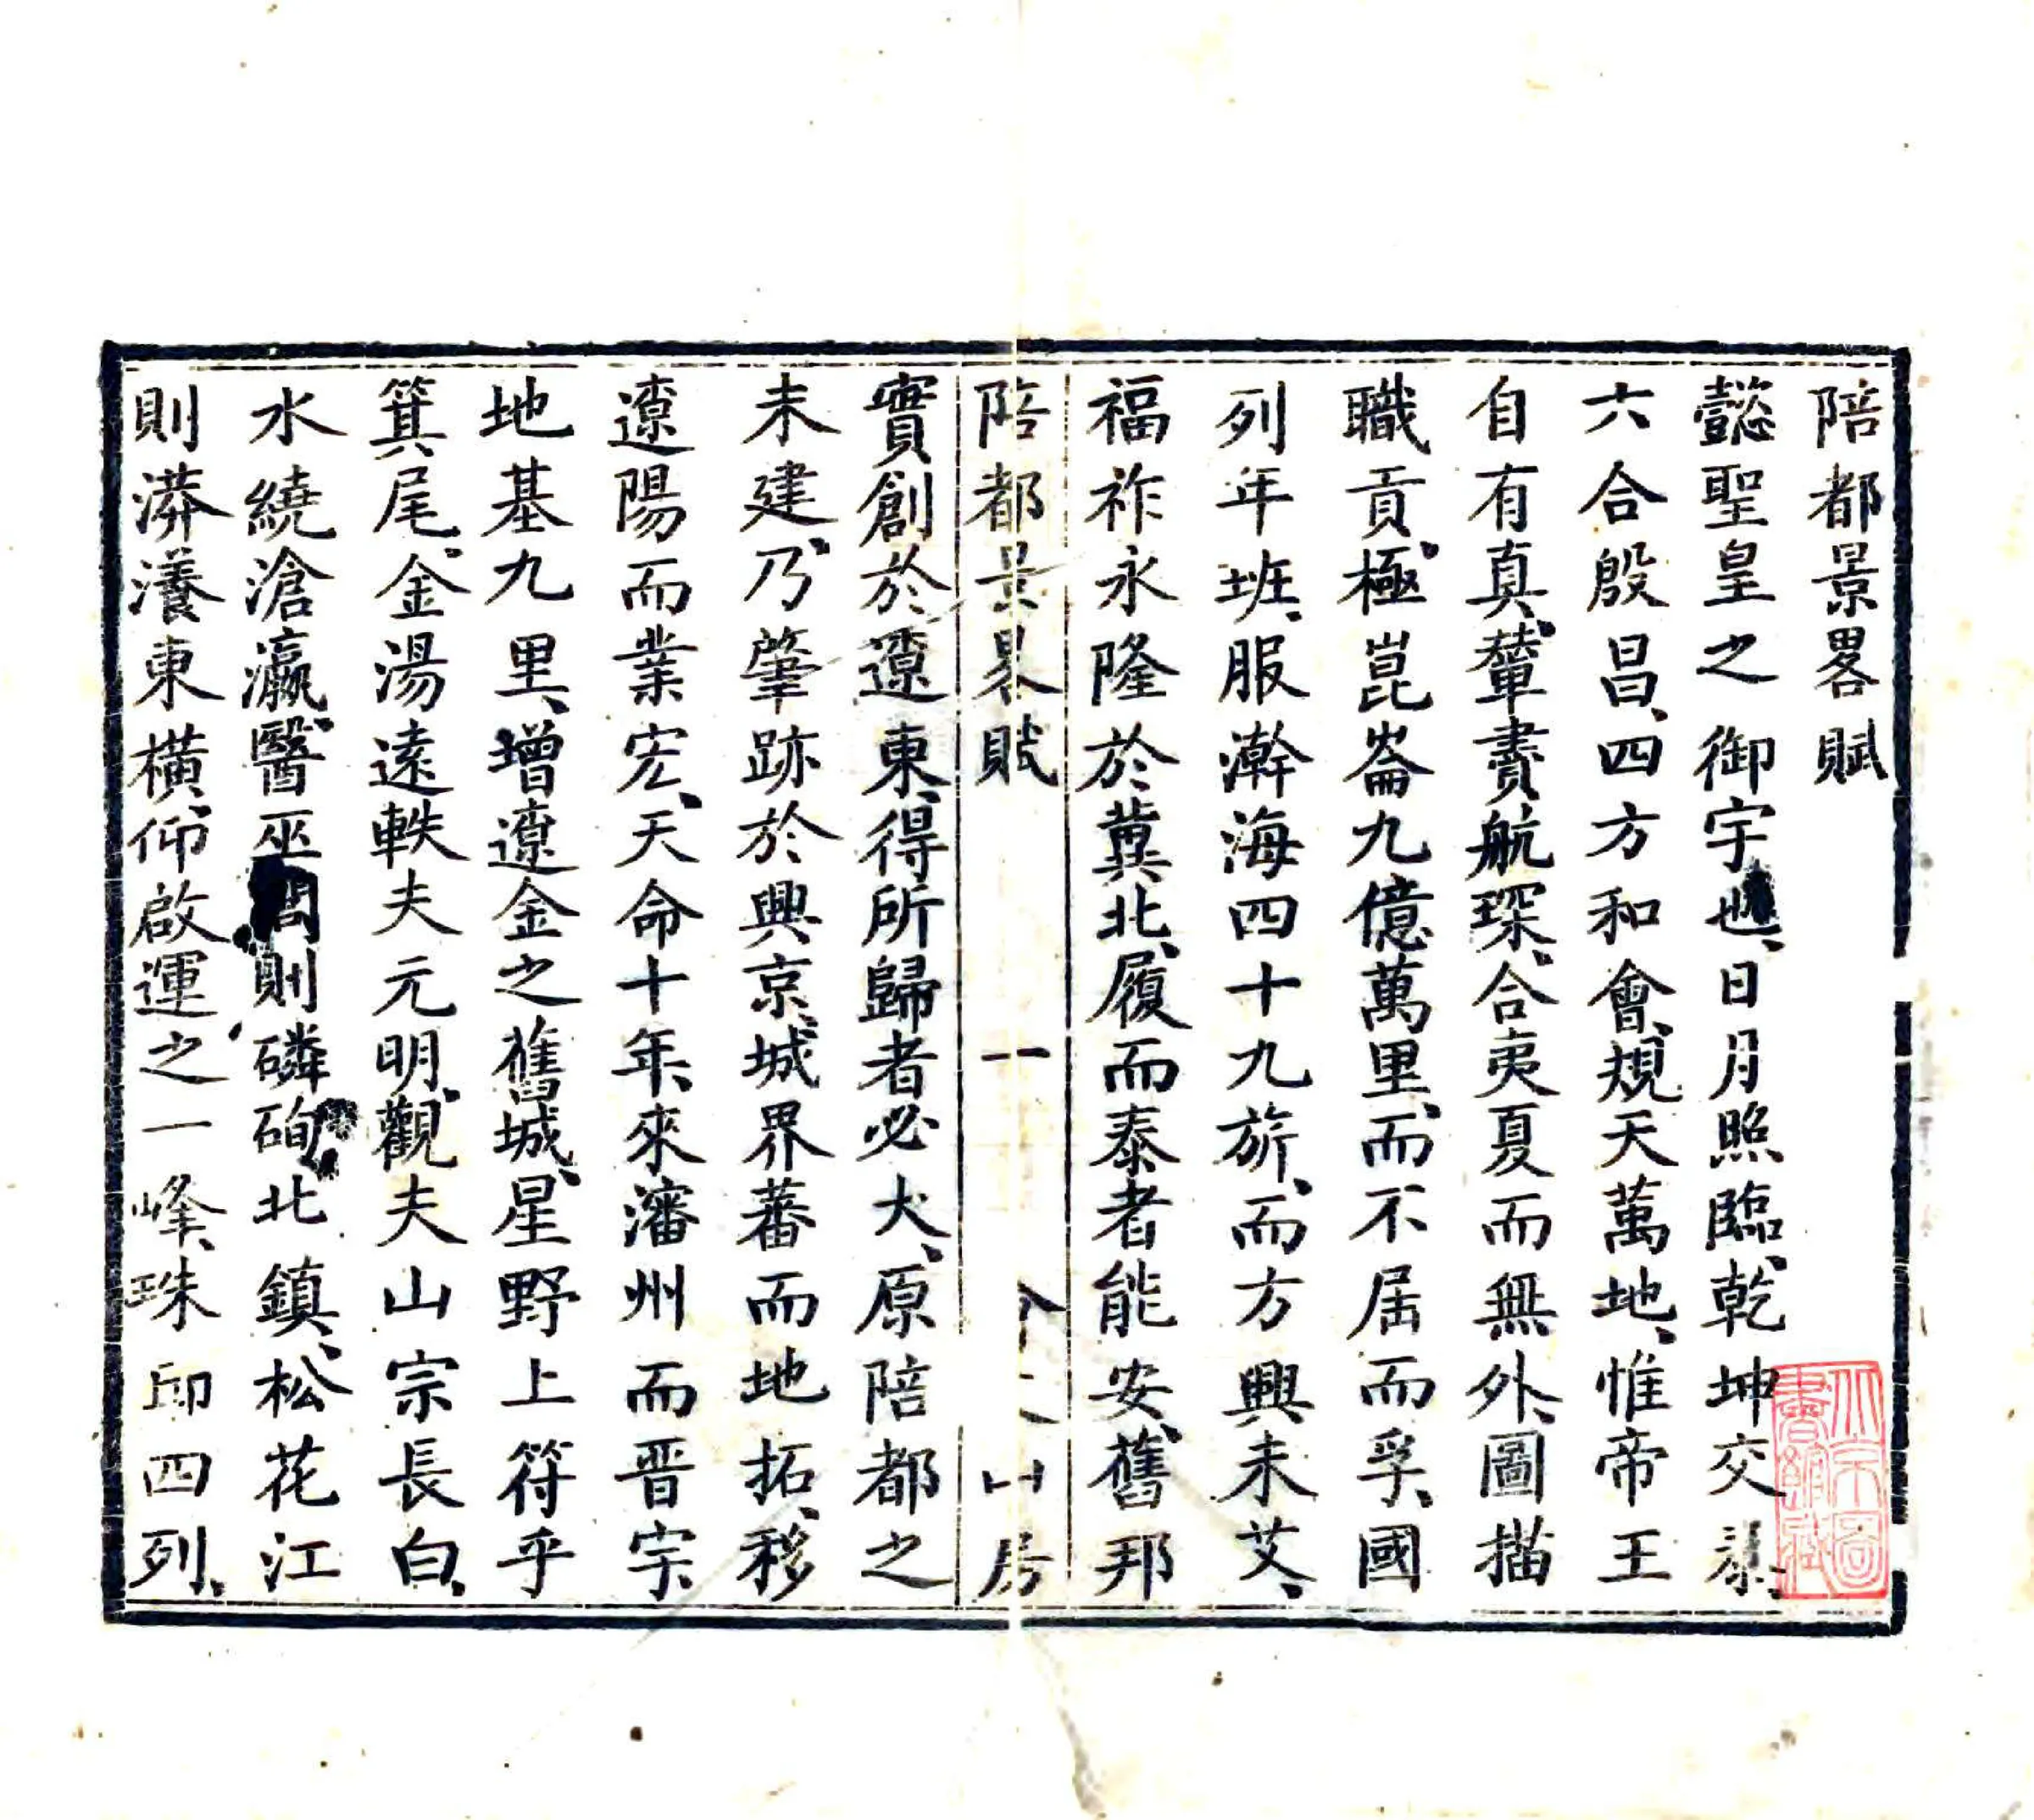 陪都景畧賦
懿聖皇之御宇也、日月照臨、乾坤交泰、
六合殷昌、四方和會、規天萬地、惟帝王
自有真、輦賮航琛、合夷夏而無外、圖描
職貢、極崑崙九億萬里、而不居而孚、國
列年班、服瀚海四十九旂、而方興未艾、
福祚永隆於冀北、履而泰者能安、舊邦
陪都景畧賦 一 山房
實創於遼東、得所歸者必大、原陪都之
未建、乃肇跡於興京、城界蕃而地拓、移
遼陽而業宏、天命十年、來瀋州而晋宗、
地基九里、增遼金之舊城、星野上符乎
箕尾、金湯遠軼夫元明、觀夫山宗長白、
水繞滄瀛、醫巫閭則磷硇北鎮、松花江
則漭瀁東橫、仰啟運之一峰、珠邱四列、